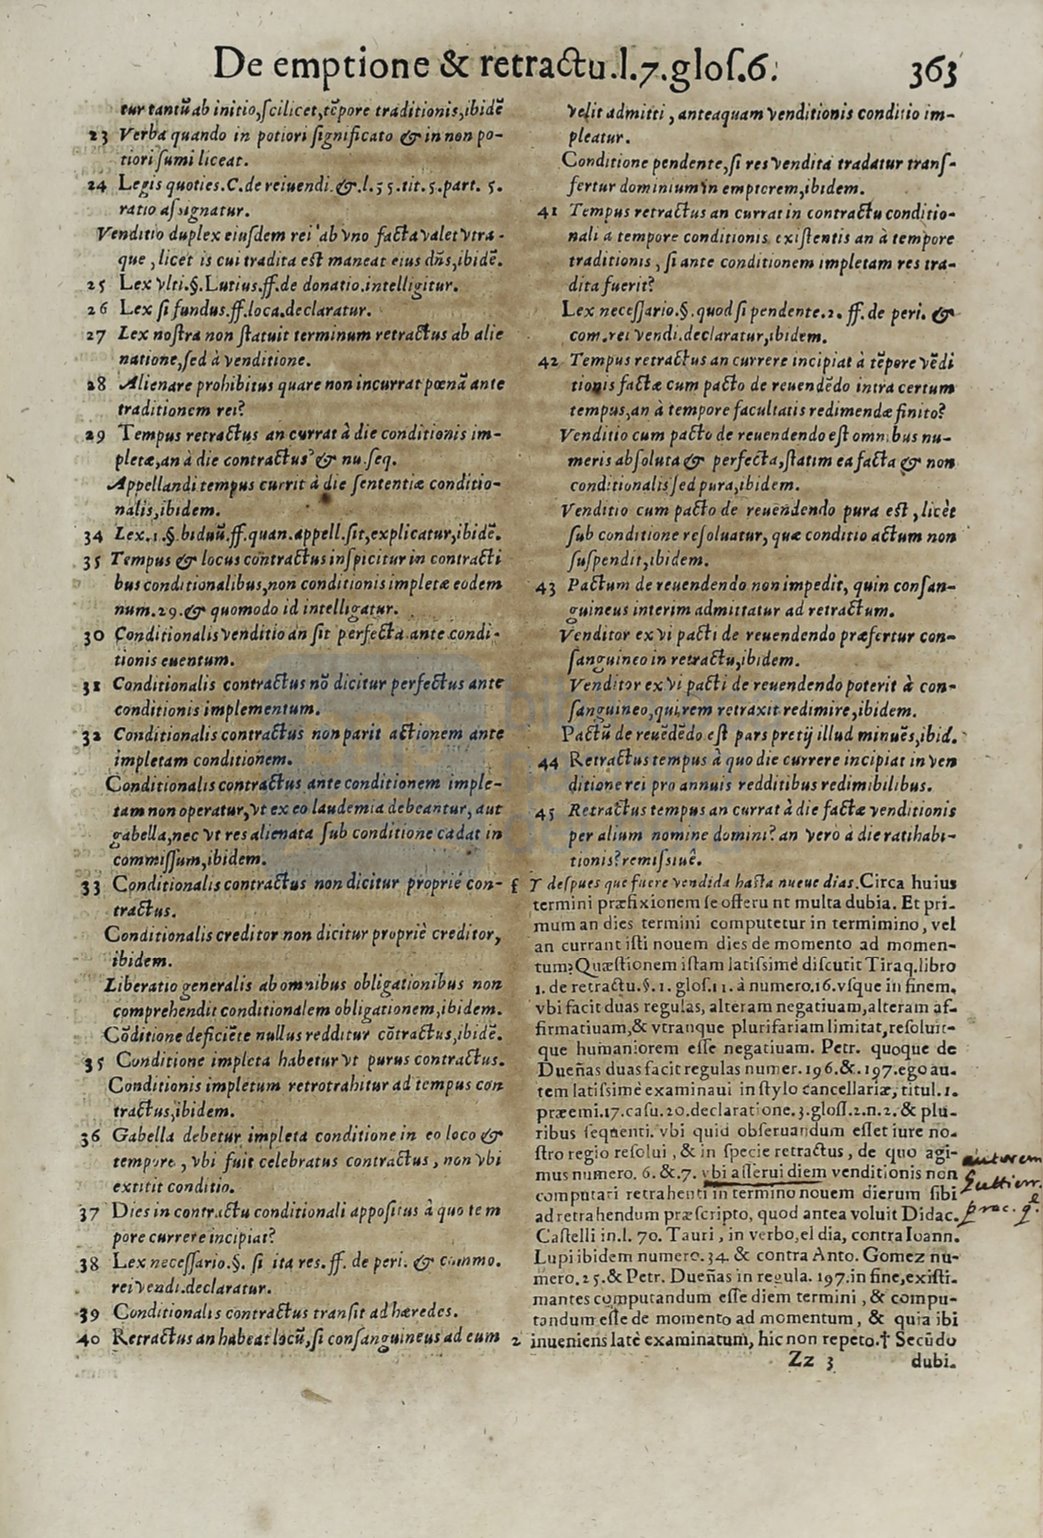 De emptione & retractu.l.7.glos.6. 363
tur tantũ ab initio, scilicet, tẽpore traditionis, ibidẽ
23 Verba quando in potiori significato & in non po-
tiori sumi liceat.
24 Legis quoties.C.de reiuendi.&.l.55.tit.5.part. 5.
ratio assignatur.
Venditio duplex eiusdem rei ab vno facta valet vtra-
que, licet is cui tradita est maneat eius dñs, ibidẽ.
25 Lex vlti.§.Lutius.ff.de donatio.intelligitur.
26 Lex si fundus.ff.loca.declaratur.
27 Lex nostra non statuit terminum retractus ab alie
natione, sed à venditione.
28 Alienare prohibitus quare non incurrat pœnã ante
traditionem rei?
29 Tempus retractus an currat à die conditionis im-
pletæ, an à die contractus & nu.seq.
Appellandi tempus currit à die sententiæ conditio-
nalis, ibidem.
34 Lex.1.§.biduũ.ff.quan.appell.sit, explicatur, ibidẽ.
35 Tempus & locus contractus inspicitur in contracti
bus conditionalibus, non conditionis impletæ eodem
num.29.& quomodo id intelligatur.
30 Conditionalis venditio an sit perfecta ante condi-
tionis euentum.
31 Conditionalis contractus nõ dicitur perfectus ante
conditionis implementum.
32 Conditionalis contractus non parit actionem ante
impletam conditionem.
Conditionalis contractus ante conditionem imple-
tam non operatur, vt ex eo laudemia debeantur, aut
gabella, nec vt res alienata sub conditione cadat in
commissum, ibidem.
33 Conditionalis contractus non dicitur propriè con-
tractus.
Conditionalis creditor non dicitur propriè creditor,
ibidem.
Liberatio generalis ab omnibus obligationibus non
comprehendit conditionalem obligationem, ibidem.
Cõditione deficiẽte nullus redditur cõtractus, ibidẽ.
35 Conditione impleta habetur vt purus contractus.
Conditionis impletum retrotrahitur ad tempus con
tractus, ibidem.
36 Gabella debetur impleta conditione in eo loco &
tempore, vbi fuit celebratus contractus, non vbi
extitit conditio.
37 Dies in contractu conditionali appositus à quo tem
pore currere incipiat?
38 Lex necessario.§. si ita res. ff. de peri. & commo.
rei vendi.declaratur.
39 Conditionalis contractus transit ad hæredes.
40 Retractus an habeat locũ, si consanguineus ad eum
velit admitti, anteaquam venditionis conditio im-
pleatur.
Conditione pendente, si res vendita tradatur trans-
fertur dominium in emptorem, ibidem.
41 Tempus retractus an currat in contractu conditio-
nali a tempore conditionis existentis an à tempore
traditionis, si ante conditionem impletam res tra-
dita fuerit?
Lex necessario.§.quod si pendente.2. ff.de peri. &
com.rei vendi.declaratur, ibidem.
42 Tempus retractus an currere incipiat à tẽpore vẽdi
tionis factæ cum pacto de reuendẽdo intra certum
tempus, an à tempore facultatis redimendæ finito?
Venditio cum pacto de reuendendo est omnibus nu-
meris absoluta & perfecta, statim ea facta & non
conditionalis sed pura, ibidem.
Venditio cum pacto de reuendendo pura est, licèt
sub conditione resoluatur, quæ conditio actum non
suspendit, ibidem.
43 Pactum de reuendendo non impedit, quin consan-
guineus interim admittatur ad retractum.
Venditor ex vi pacti de reuendendo præfertur con-
sanguineo in retractu, ibidem.
Venditor ex vi pacti de reuendendo poterit à con-
sanguineo, qui rem retraxit redimire, ibidem.
Pactũ de reuẽdẽdo est pars pretij illud minuẽs, ibid.
44 Retractus tempus à quo die currere incipiat in ven
ditione rei pro annuis redditibus redimibilibus.
45 Retractus tempus an currat à die factæ venditionis
per alium nomine domini? an vero à die ratihabi-
tionis? remissiuè.
f Y despues que fuere vendida hasta nueue dias.Circa huius
termini præfixionem se offerunt multa dubia. Et pri-
mum an dies termini computetur in termimino, vel
an currant isti nouem dies de momento ad momen-
tum? Quæstionem istam latissimè discutit Tiraq.libro
1. de retractu.§.1. glos.11. à numero.16.vsque in finem,
vbi facit duas regulas, alteram negatiuam, alteram af-
firmatiuam, & vtranque plurifariam limitat, resoluit-
que humaniorem esse negatiuam. Petr. quoque de
Dueñas duas facit regulas numer.196.&.197.ego au-
tem latissimè examinaui in stylo cancellariæ, titul.1.
præemi.17.casu.20.declaratione.3.gloss.2.n.2.& plu-
ribus sequenti. vbi quid obseruandum esset iure no-
stro regio resolui, & in specie retractus, de quo agi-
mus numero. 6.&.7. vbi asserui diem venditionis non
computari retrahenti in termino nouem dierum sibi
ad retrahendum præscripto, quod antea voluit Didac.
Castelli in.l. 70. Tauri, in verbo, el dia, contra Ioann.
Lupi ibidem numero.34. & contra Anto. Gomez nu-
mero.25.& Petr. Dueñas in regula. 197.in fine, existi-
mantes computandum esse diem termini, & compu-
tandum esse de momento ad momentum, & quia ibi
2 inueniens latè examinatum, hic non repeto.† Secũdo
Zz 3 dubi-